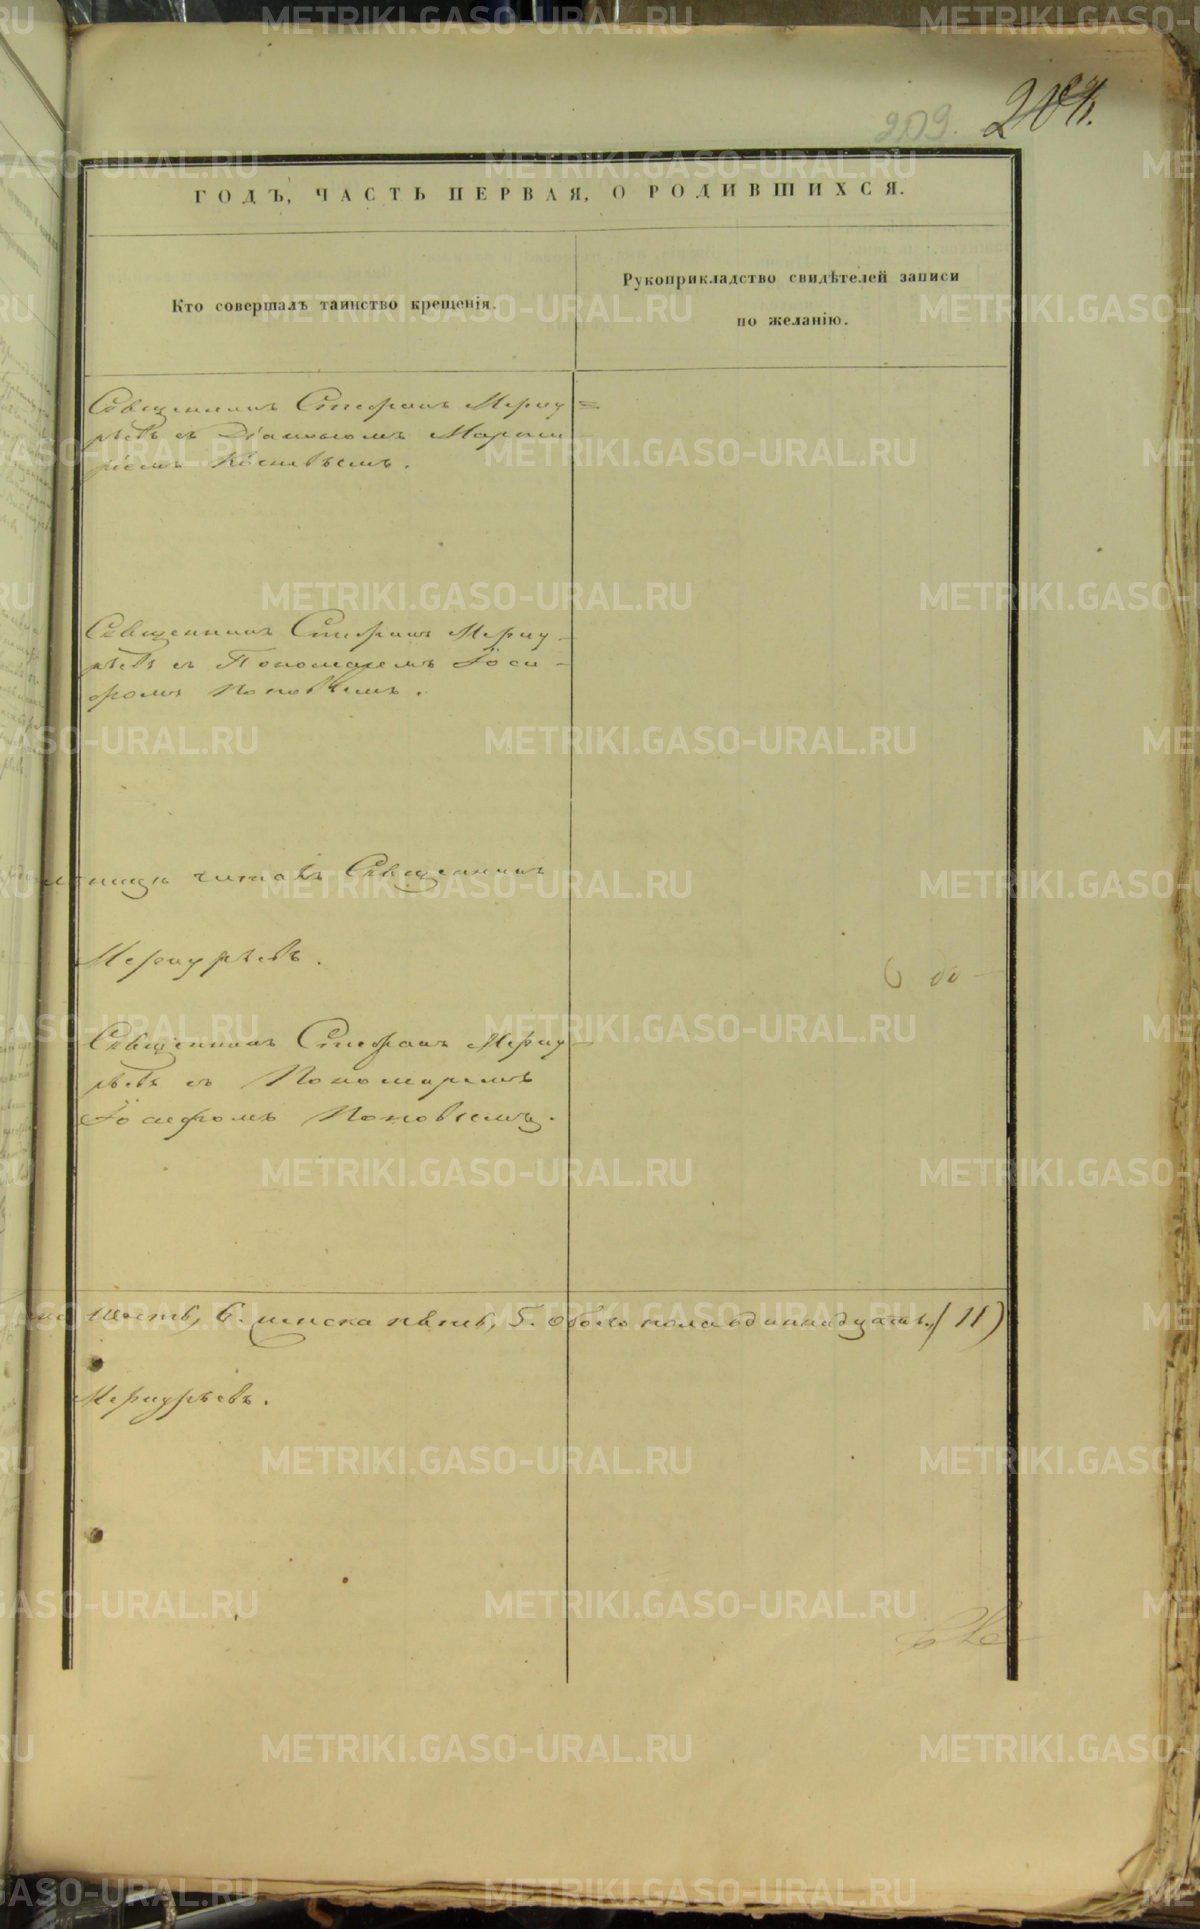 209.
ГОДЪ, ЧАСТЬ ПЕРВАЯ, О РОДИВШИХСЯ.
Кто совершалъ таинство крещенія.
Рукоприкладство свидѣтелей записи
по желанію.
Священникъ Стефанъ Мерку=
рьевъ съ Діакономъ
Священникъ Стефанъ Мерку-
рьевъ съ Пономаремъ Іоси-
фомъ Поповымъ.
читалъ Священникъ
Меркурьевъ.
Священникъ Стефанъ Мерку-
рьевъ съ Пономаремъ
Іосифомъ Поповымъ.
шесть, 6. женска пять, 5. обоего пола одиннадцать. (11)
Меркурьевъ.
METRIKI.GASO-URAL.RU